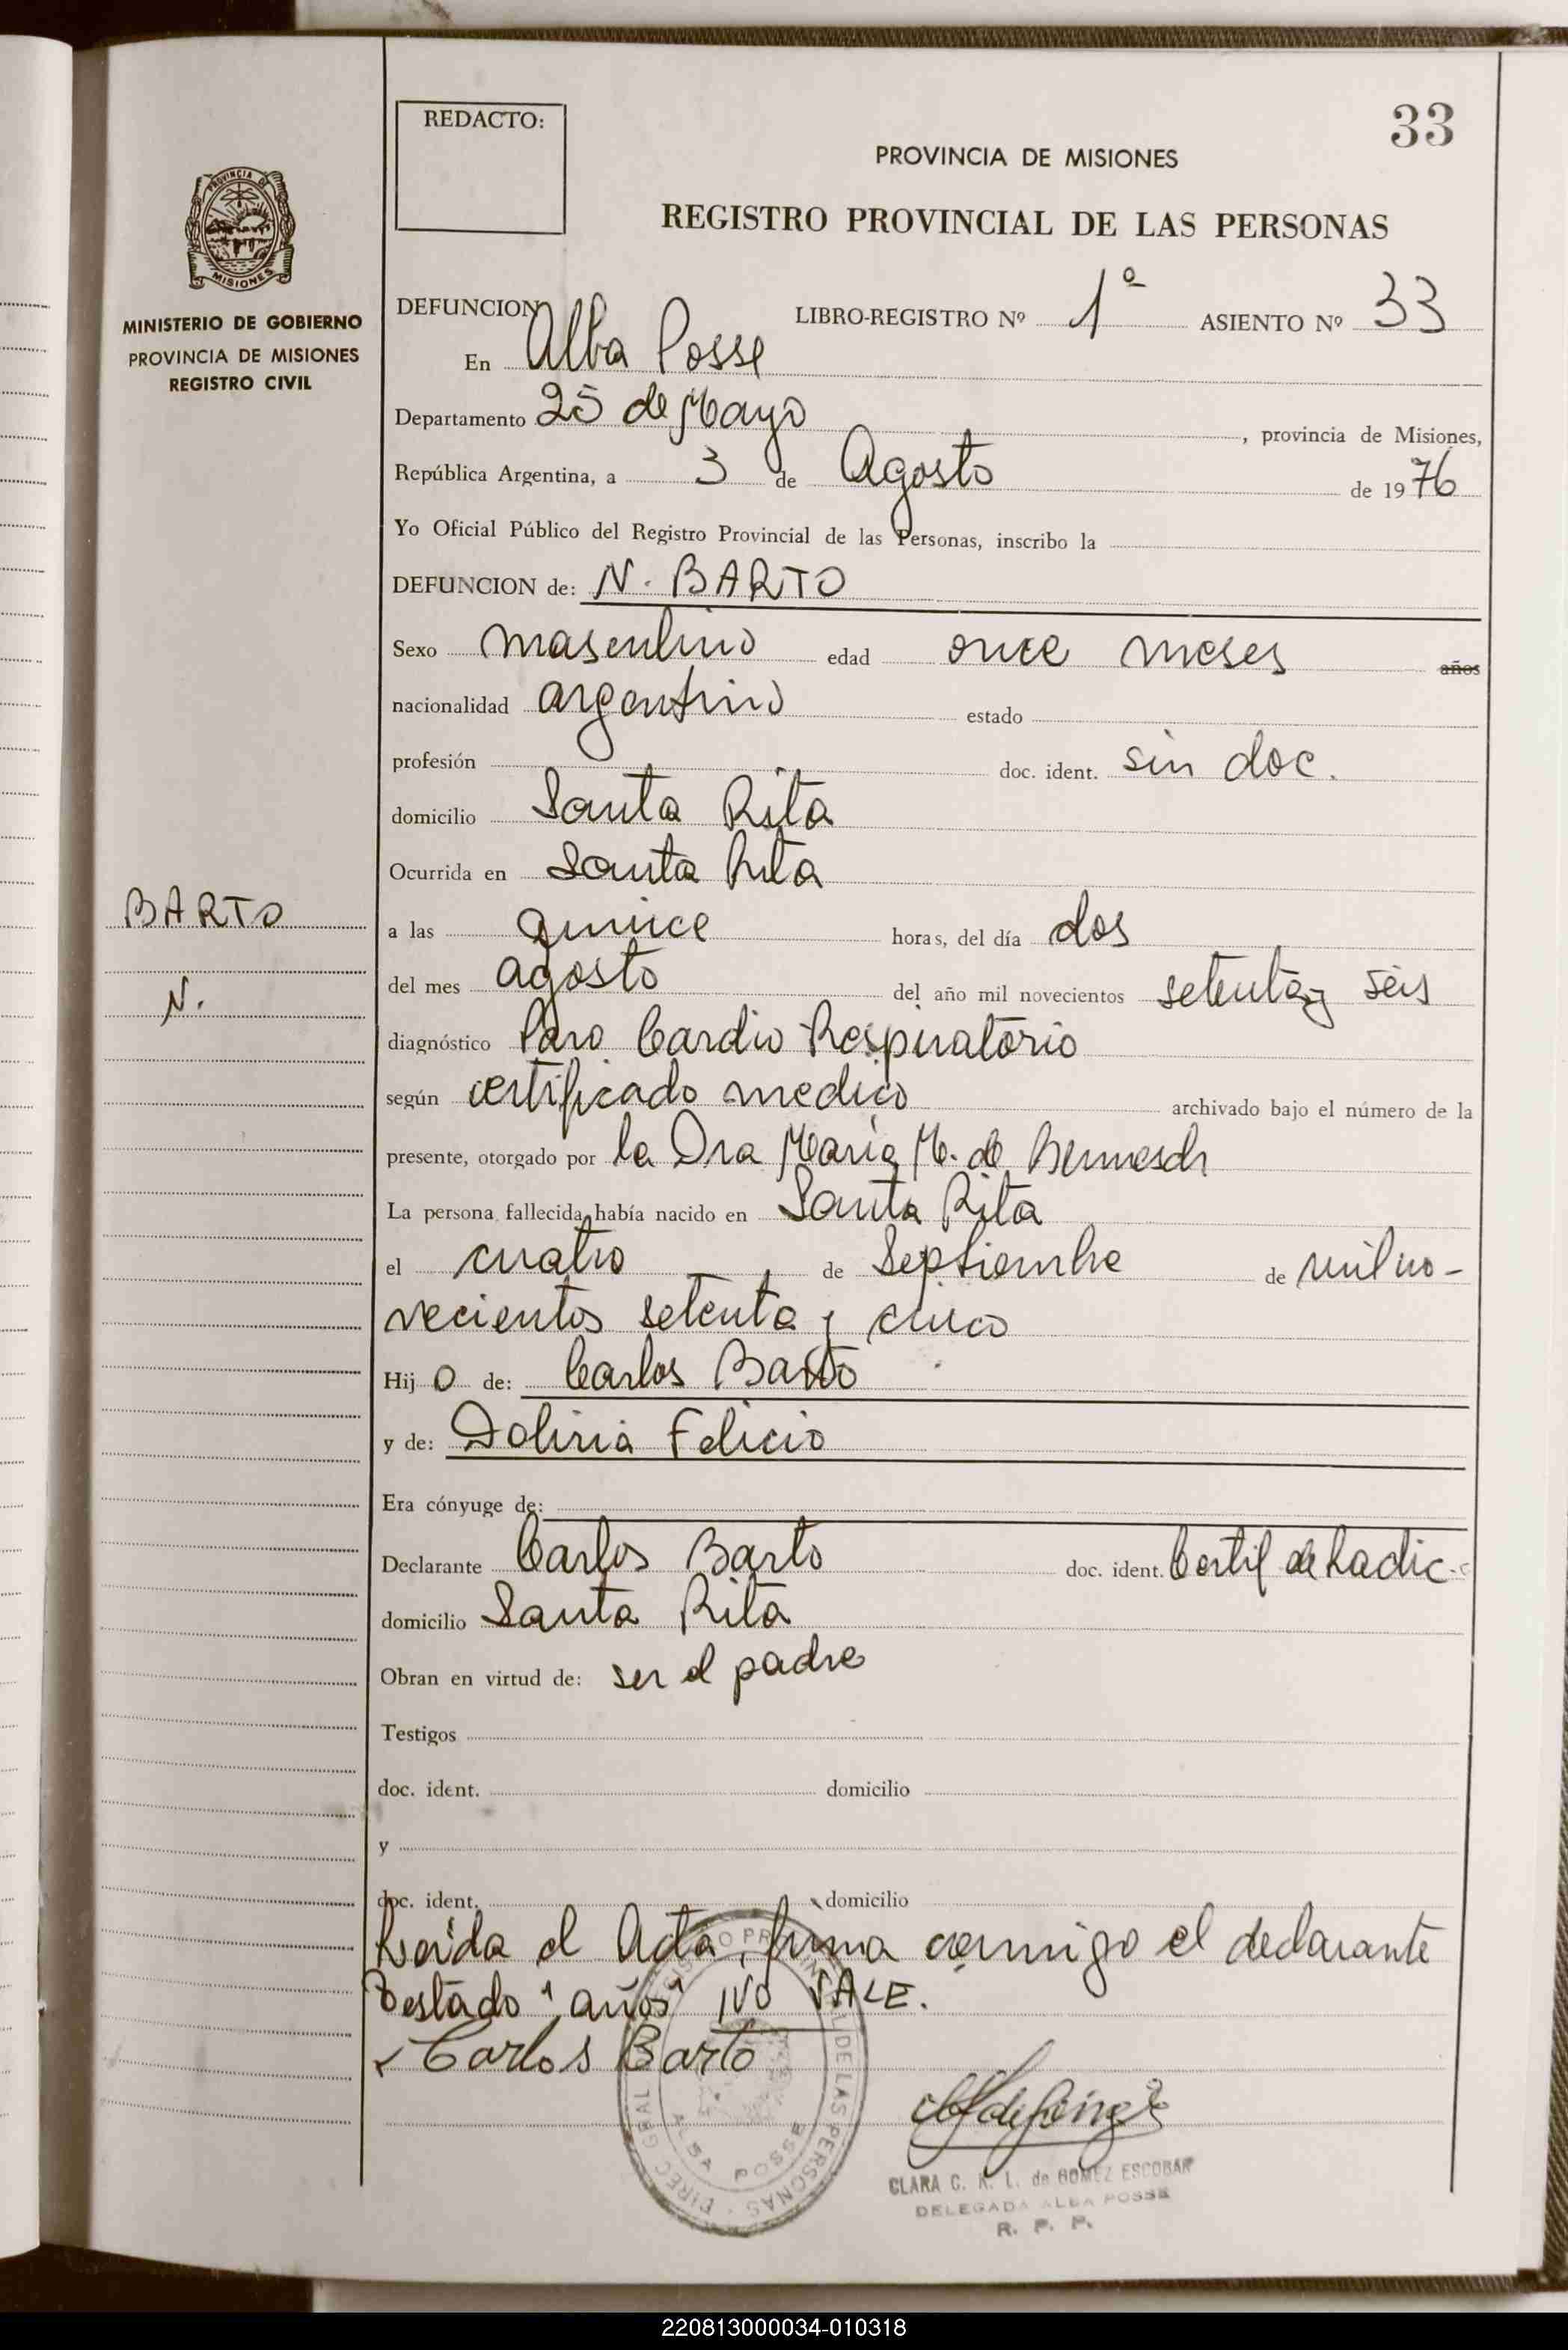 33
REDACTO:
PROVINCIA DE MISIONES
REGISTRO PROVINCIAL DE LAS PERSONAS
PROVINCIA DE
MISIONES
MINISTERIO DE GOBIERNO
PROVINCIA DE MISIONES
REGISTRO CIVIL
DEFUNCION LIBRO-REGISTRO Nº 1º ASIENTO Nº 33
En Alba Posse
Departamento 25 de Mayo, provincia de Misiones,
República Argentina, a 3 de Agosto de 1976
Yo Oficial Público del Registro Provincial de las Personas, inscribo la
DEFUNCION de: N. BARTO
Sexo masculino edad once meses años
nacionalidad argentino estado
profesión doc. ident. sin doc.
domicilio Santa Rita
Ocurrida en Santa Rita
BARTO
N.
a las quince horas, del día dos
del mes agosto del año mil novecientos setenta y seis
diagnóstico Paro Cardio Respiratorio
según certificado medico archivado bajo el número de la
presente, otorgado por la Dra María M. de
La persona fallecida había nacido en Santa Rita
el cuatro de Septiembre de mil no-
vecientos setenta y cinco
Hijo de: Carlos Barto
y de: Doliria Felicio
Era cónyuge de:
Declarante Carlos Barto doc. ident. Certif de Radic.
domicilio Santa Rita
Obran en virtud de: ser el padre
Testigos
doc. ident. domicilio
y
doc. ident. domicilio
Leída el Acta, firma conmigo el declarante
Testado "años" NO VALE.
Carlos Barto
DE LAS PERSONAS - DIREC GRAL
ALBA POSSE
CLARA C. K. L. de GOMEZ ESCOBAR
DELEGADA ALBA POSSE
R. P. P.
220813000034-010318